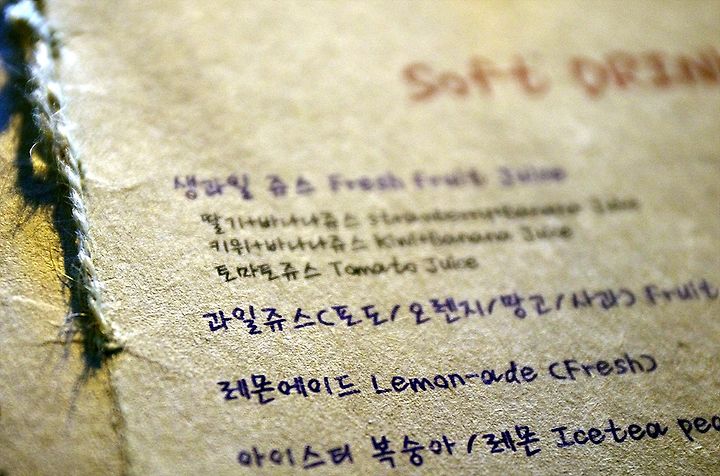 Soft DRIN
생과일 쥬스 Fresh Fruit Juice
딸기+바나나쥬스 Strawberry+Banana Juice
키위+바나나쥬스 Kiwi+Banana Juice
토마토쥬스 Tomato Juice
과일쥬스(포도/오렌지/망고/사과) Fruit
레몬에이드 Lemon-ade (Fresh)
아이스티 복숭아/레몬 Icetea pea